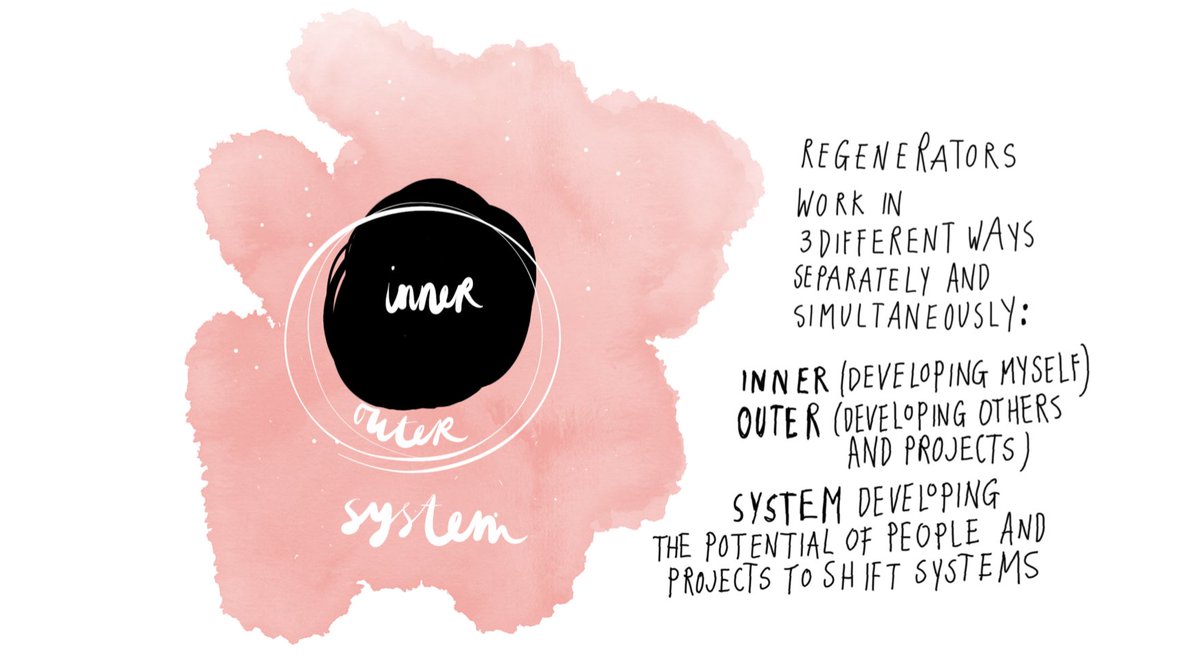 inner
outer
system
REGENERATORS
WORK IN
3 DIFFERENT WAYS
SEPARATELY AND
SIMULTANEOUSLY:
INNER (DEVELOPING MYSELF)
OUTER (DEVELOPING OTHERS
AND PROJECTS)
SYSTEM DEVELOPING
THE POTENTIAL OF PEOPLE AND
PROJECTS TO SHIFT SYSTEMS